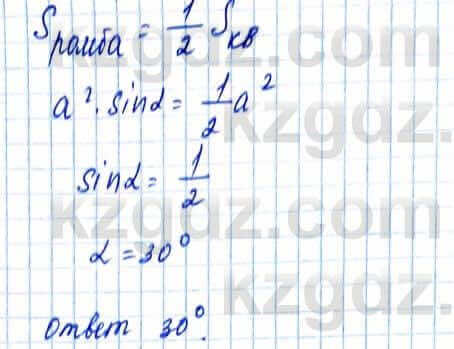 Sромба = 1/2 Sкв
a² · sinα = 1/2 a²
sinα = 1/2
α = 30°
ответ 30°.
kzgdz.com
kzgdz.com
kzgdz.com
kzgdz.com